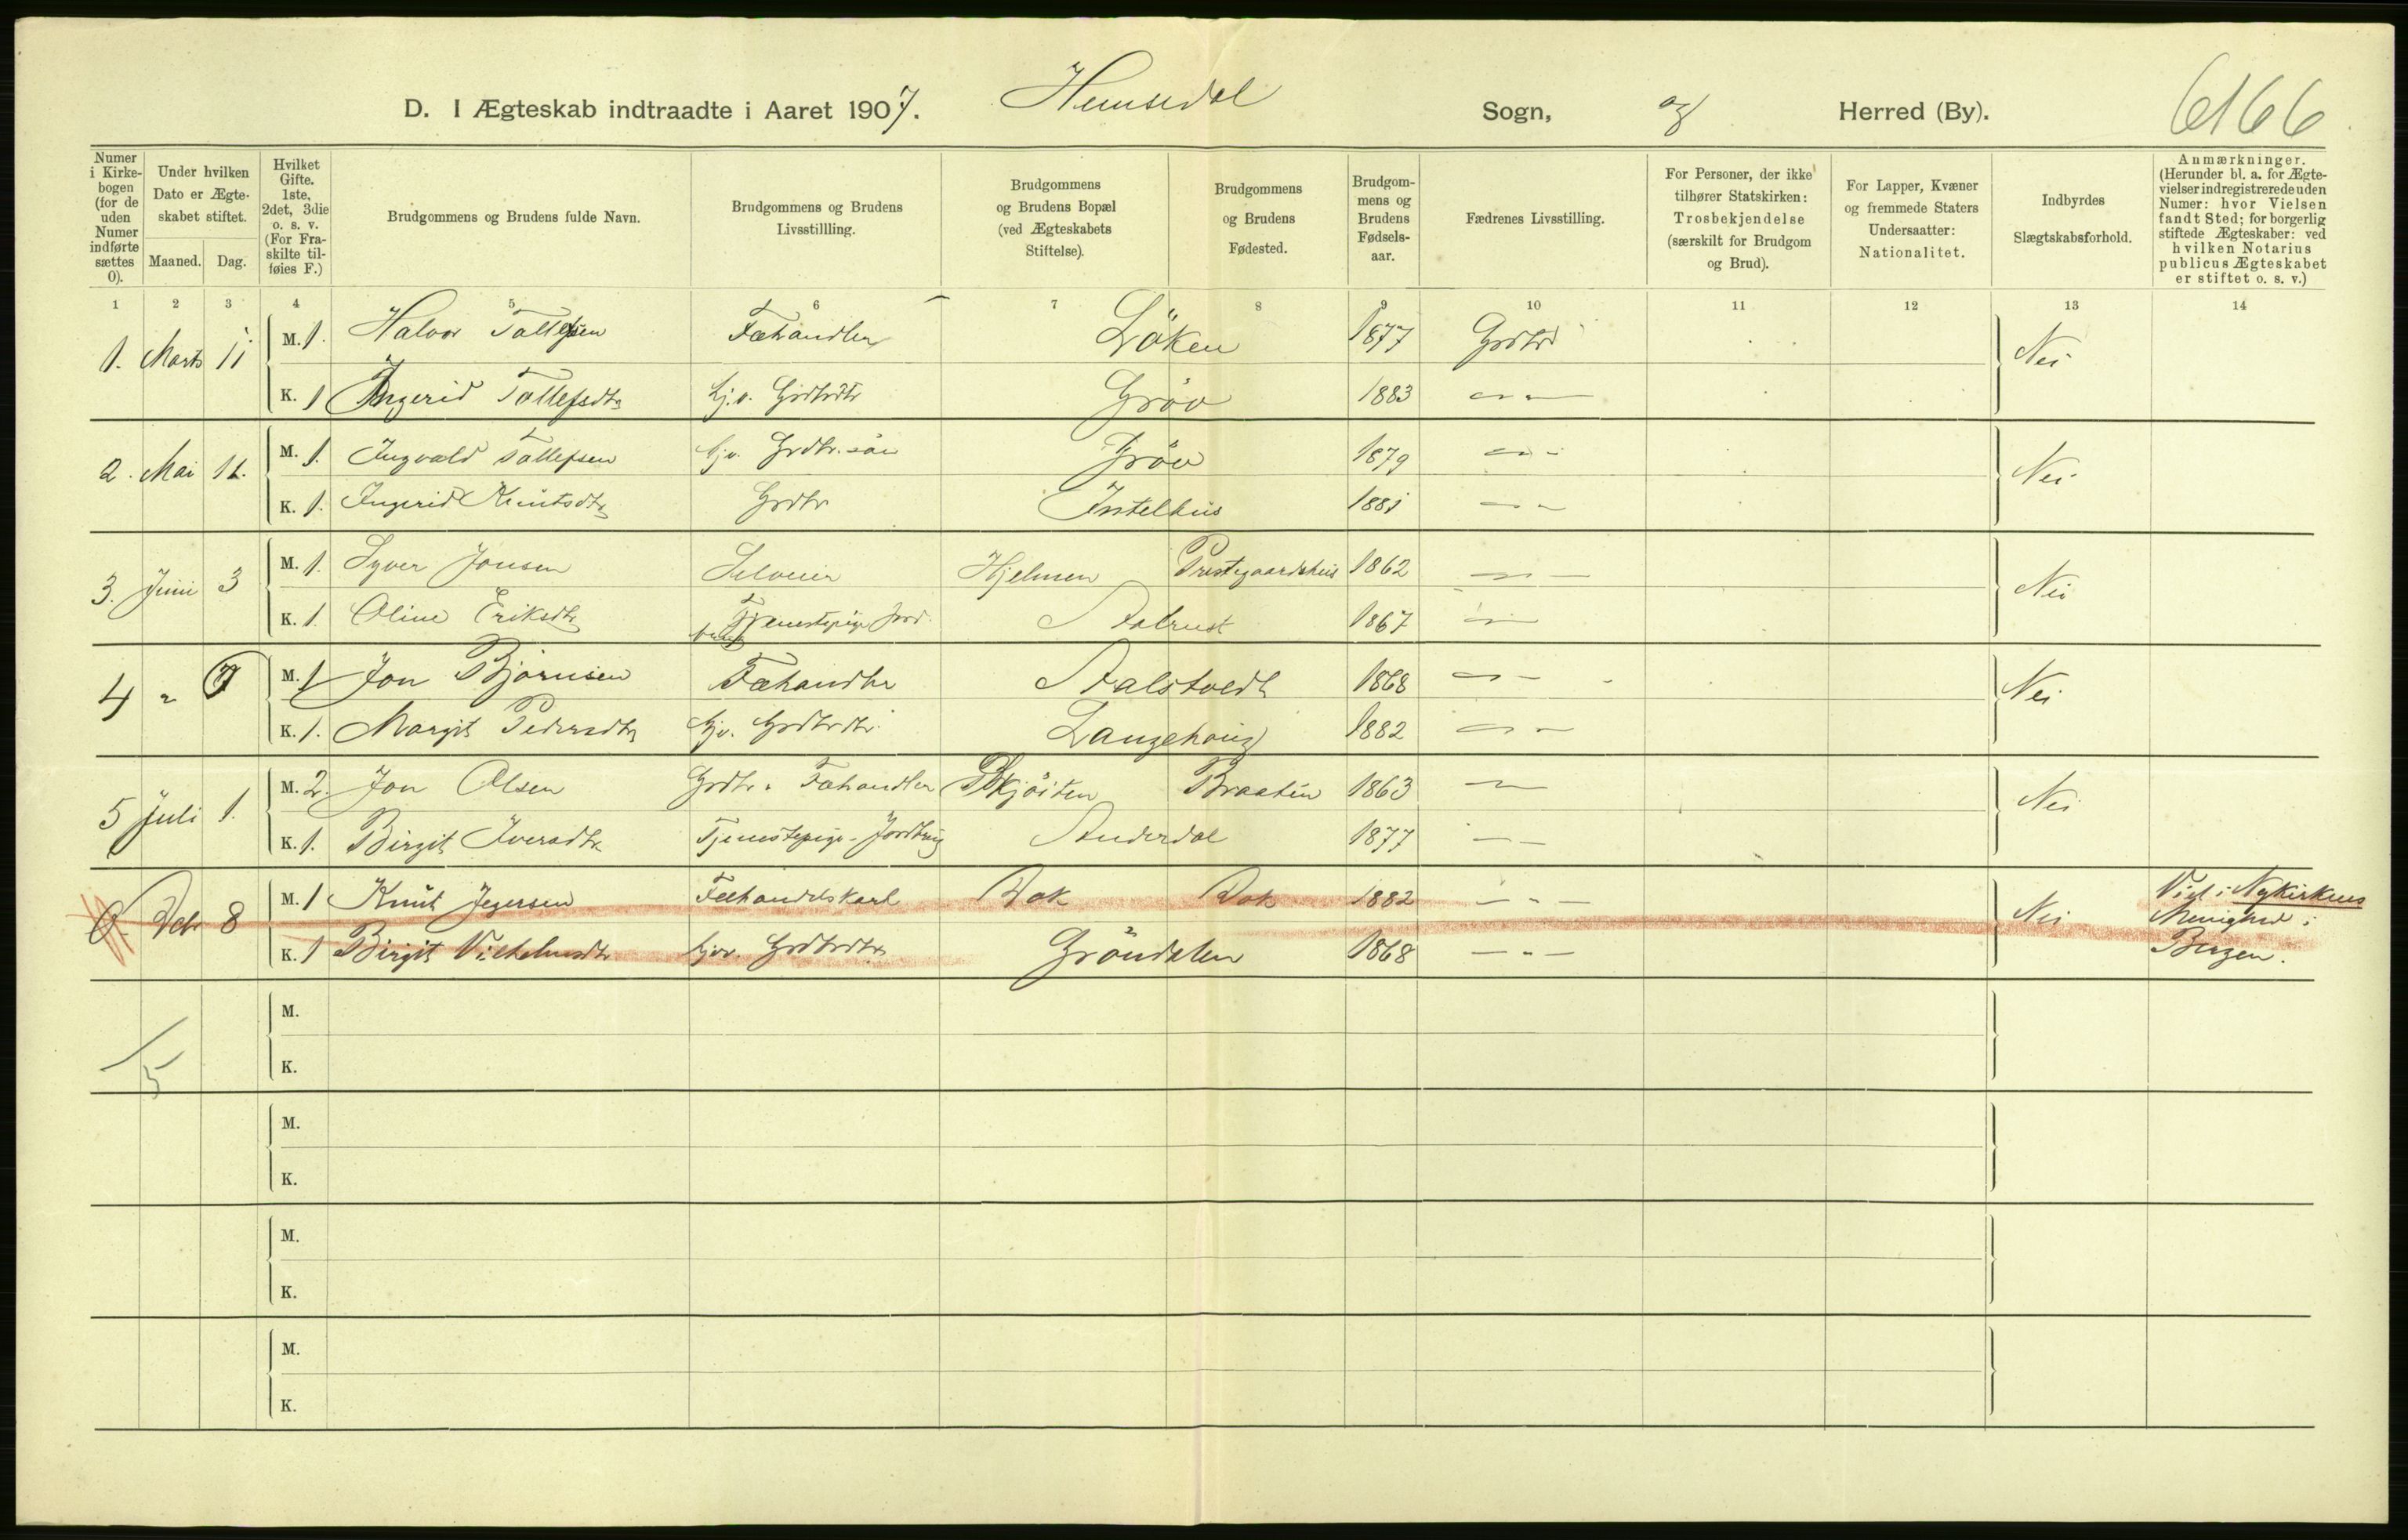 D. I Ægteskab indtraadte i Aaret 1907. Hemsedal Sogn, og Herred (By). 6166
Numer i Kirkebogen (for de uden Numer indførte sættes 0). | Under hvilken Dato er Ægteskabet stiftet. Maaned. Dag. | Hvilket Gifte. 1ste, 2det, 3die o. s. v. (For Fraskilte tilføies F.) | Brudgommens og Brudens fulde Navn. | Brudgommens og Brudens Livsstillling. | Brudgommens og Brudens Bopæl (ved Ægteskabets Stiftelse). | Brudgommens og Brudens Fødested. | Brudgommens og Brudens Fødselsaar. | Fædrenes Livsstilling. | For Personer, der ikke tilhører Statskirken: Trosbekjendelse (særskilt for Brudgom og Brud). | For Lapper, Kvæner og fremmede Staters Undersaatter: Nationalitet. | Indbyrdes Slægtskabsforhold. | Anmærkninger. (Herunder bl. a. for Ægtevielser indregistrerede uden Numer: hvor Vielsen fandt Sted; for borgerlig stiftede Ægteskaber: ved hvilken Notarius publicus Ægteskabet er stiftet o. s. v.)
1 2 3 4 5 6 7 8 9 10 11 12 13 14
1. Marts 11 M. 1. Halvor Tollefsen Fæhandler Löken 1877 Grdbr Nei
K. 1 Ingerid Tollefsdtr Hj.v. Grdbrdtr Gröv 1883 — " —
2. Mai 11. M. 1. Ingvald Tollefsen Hjv. Grdbr. sön Gröv 1879 — " — Nei
K. 1. Ingerid Knutsdtr Grdbr Instelhus 1881 — " —
3. Juni 3 M. 1. Syver Jonsen Selveier Hjelmen Prestegaardshus 1862 — " — Nei
K. 1. Oline Eriksdtr Tjenestepige Jord. brug Stolrust 1867 — " —
4 " 7 M. 1 Jon Bjørnsen Fæhandler 1868 — " — Nei
K. 1. Margit Pedersdtr Hjv. Grdbrdtr. Langehoug 1882 — " —
5 Juli 1. M. 2. Jon Olsen Grdbr. Fæhandler Skjöiten Braaten 1863 — " — Nei
K. 1. Birgit Iversdtr Tjenestepige - Jordbrug 1877 — " —
Debr 8 M. 1 Knut Jegersen Fæhandelskarl Dok Dok 1882 — " — Nei Viel i Nykirkens
Menighed i
K. 1 Birgit Vilhelmsdtr Hjv. Grdbrdtr Gröndalen 1868 — " — Bergen.
M.
K.
5
M.
K.
M.
K.
M.
K.